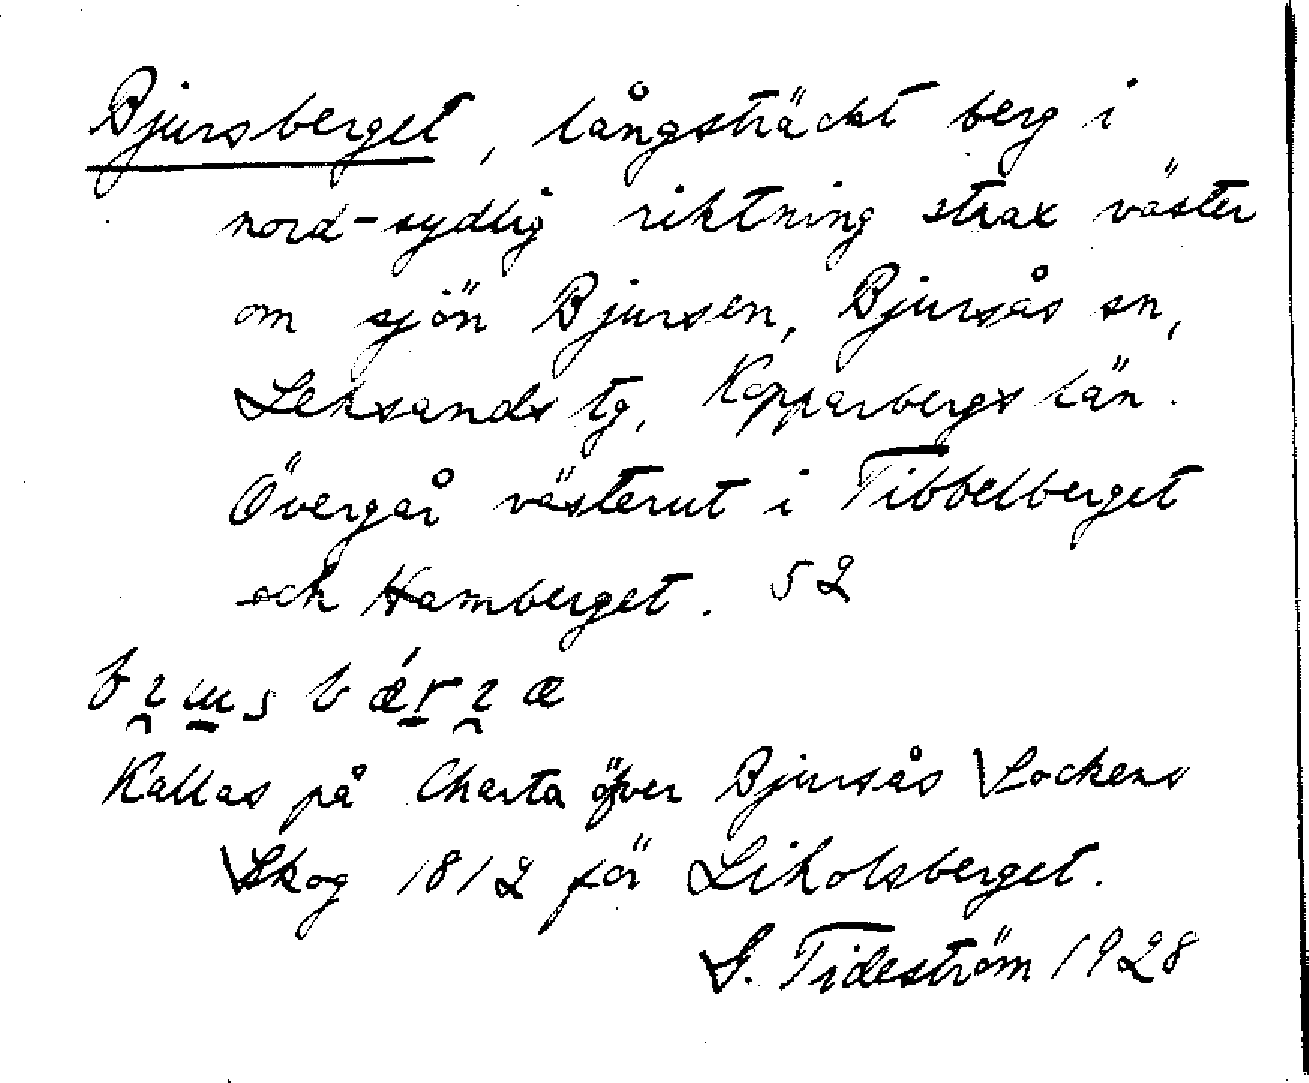 Bjursberget, långsträckt berg i
nord-sydlig riktning strax väster
om sjön Bjursen, Bjursås sn,
Leksands tg, Kopparbergs län.
Övergår västerut i Tibbelberget
och Hamberget. 52
Kallas på Charta öfver Bjursås Sockens
Skog 1812 för Likolsberget.
G. Tideström 1928